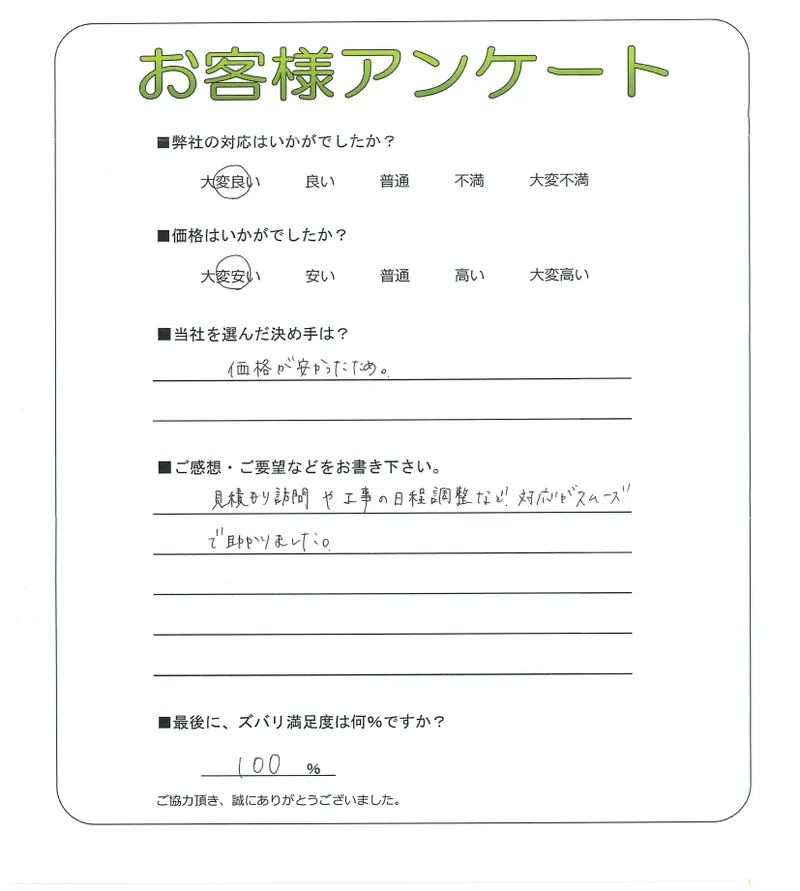 お客様アンケート
■弊社の対応はいかがでしたか？
大変良い 良い 普通 不満 大変不満
■価格はいかがでしたか？
大変安い 安い 普通 高い 大変高い
■当社を選んだ決め手は？
価格が安かったため。
■ご感想・ご要望などをお書き下さい。
見積もり訪問や工事の日程調整など、対応がスムーズ
で助かりました。
■最後に、ズバリ満足度は何％ですか？
100 %
ご協力頂き、誠にありがとうございました。